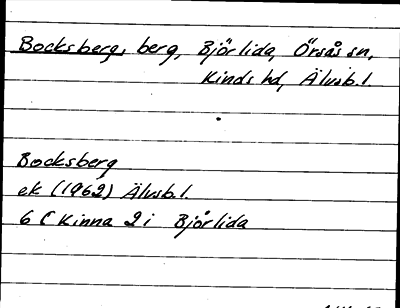 Bocksberg, berg, Björlida, Örsås sn,
Kinds hd, Älvsb.l.
Bocksberg
ek (1962) Älvsb.l.
6 C Kinna 2 i Björlida